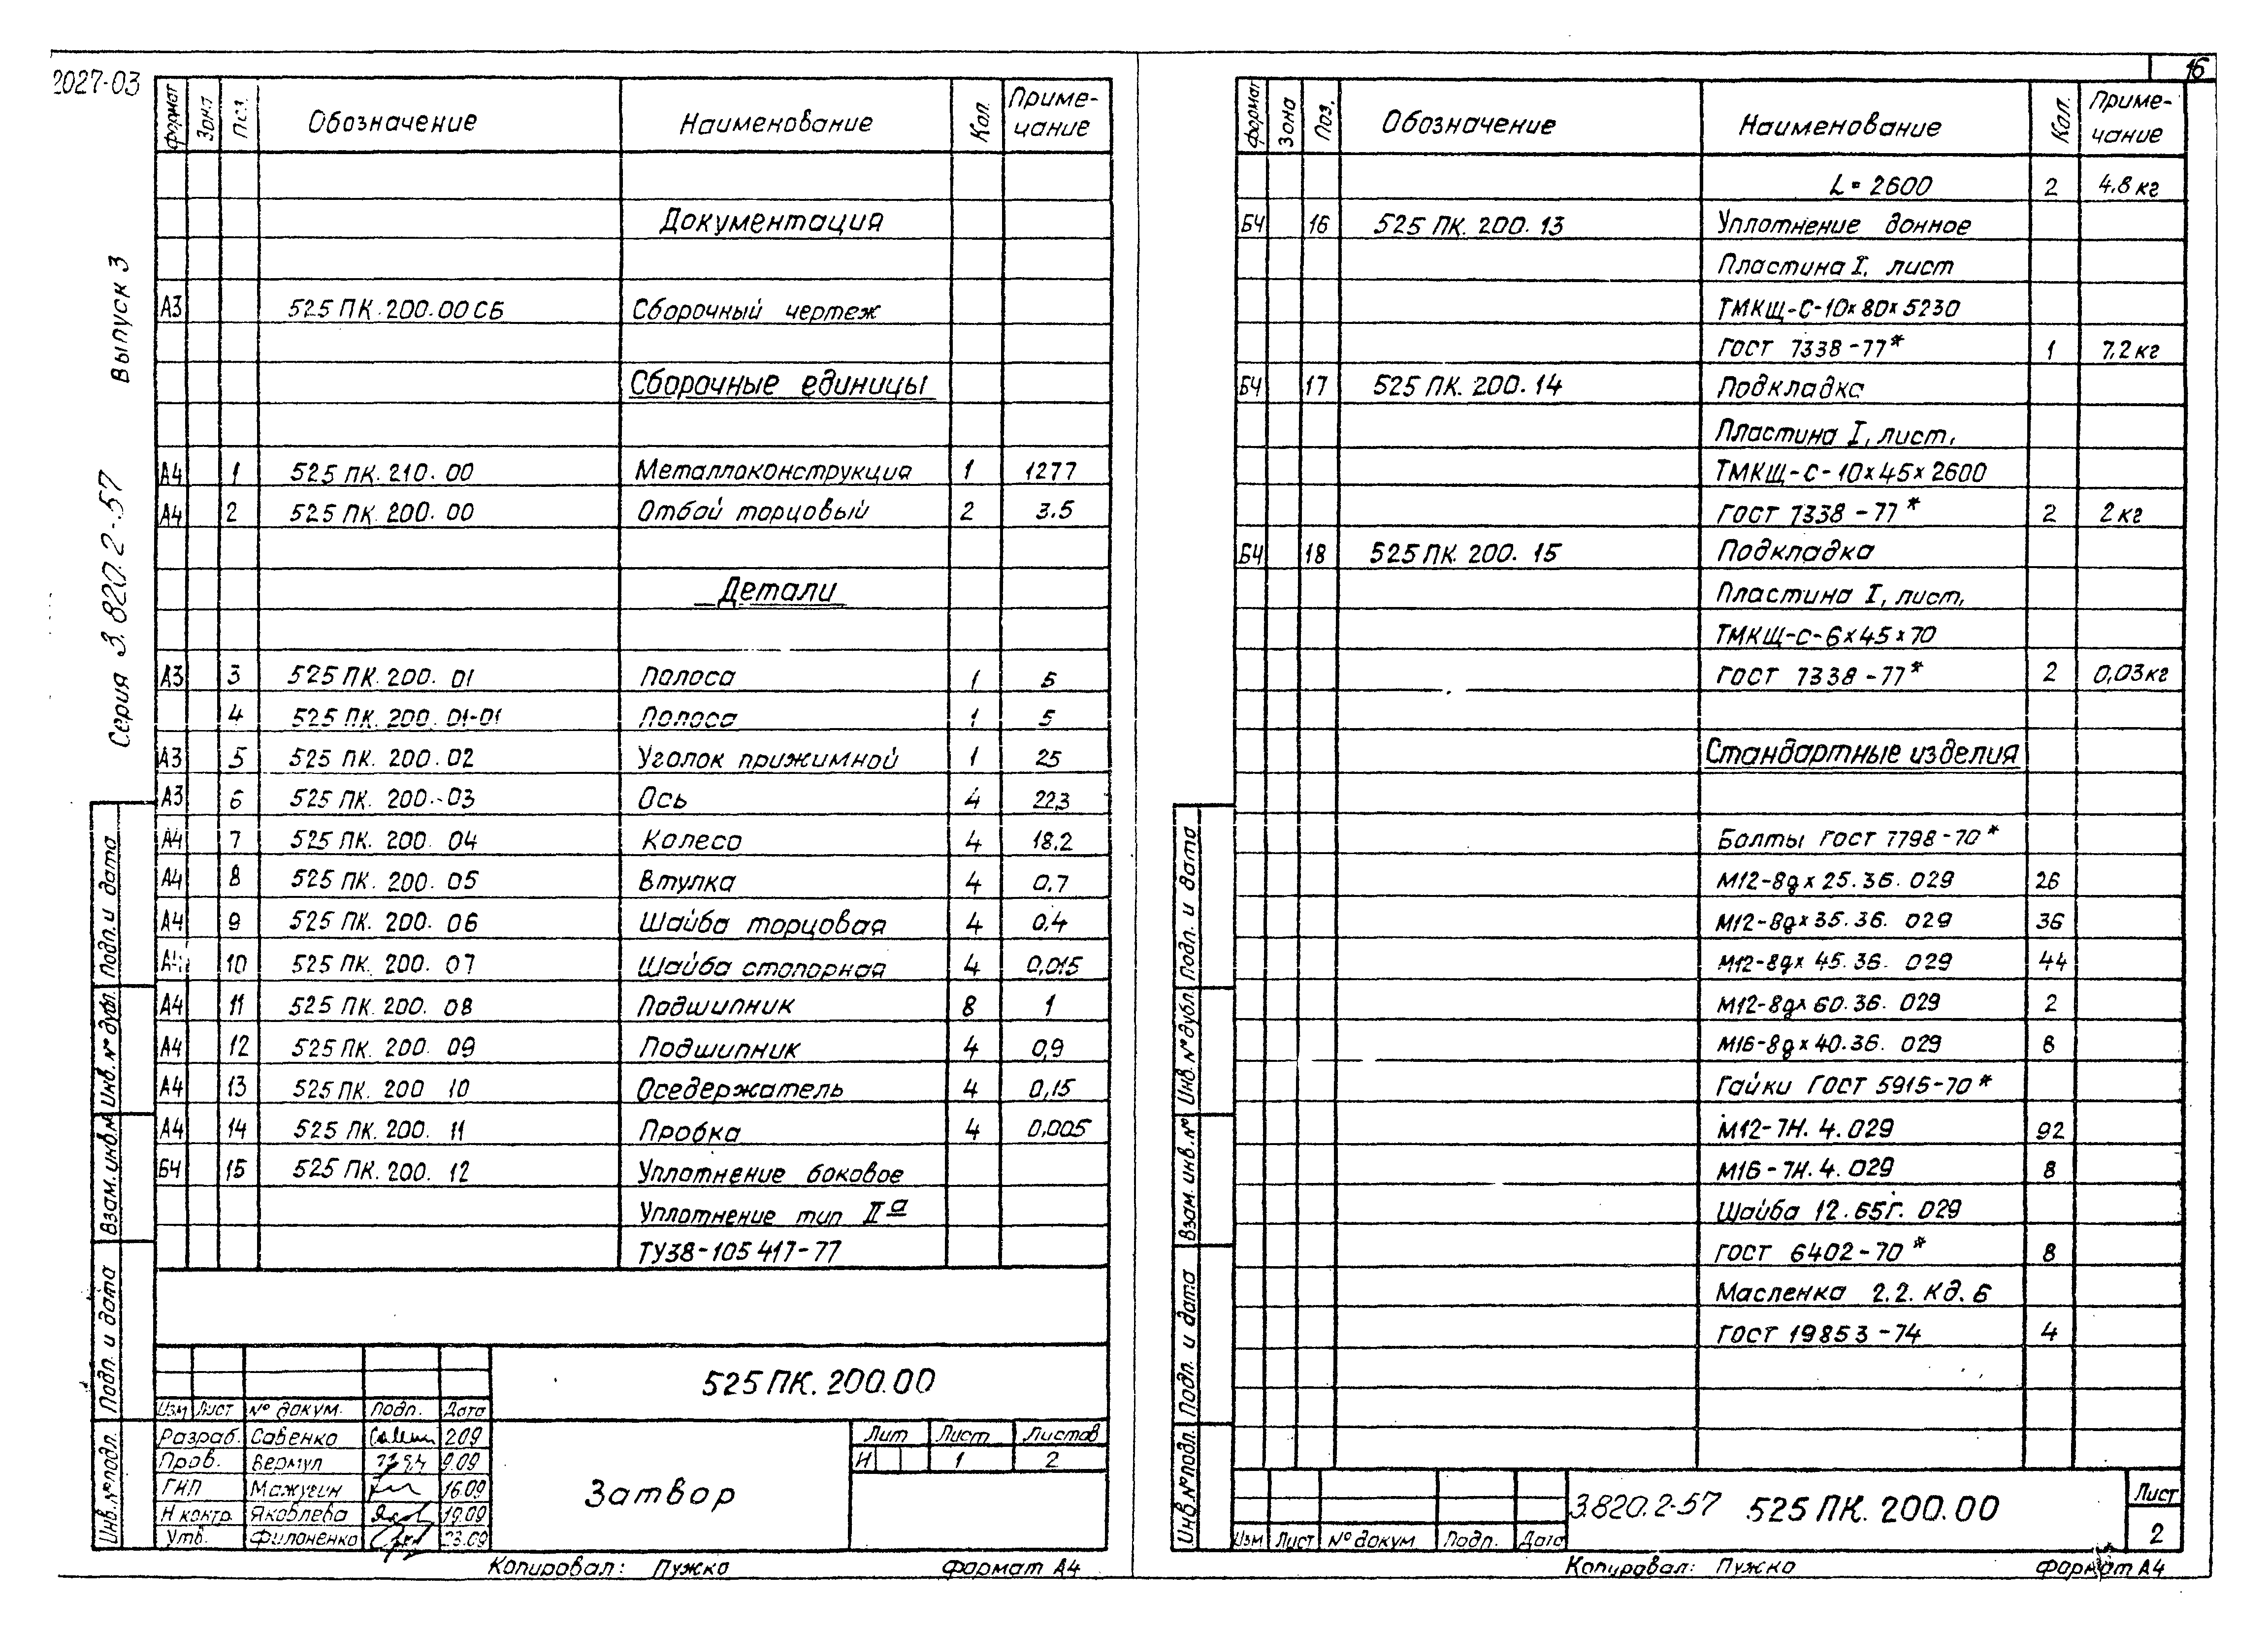 2027-03
Серия 3.820.2-57 Выпуск 3
Формат Зона Поз. Обозначение Наименование Кол. Приме-
чание
Документация
А3 525 ПК.200.00 СБ Сборочный чертеж
Сборочные единицы
А4 1 525 ПК.210.00 Металлоконструкция 1 1277
А4 2 525 ПК.200.00 Отбой торцовый 2 3.5
Детали
А3 3 525 ПК.200.01 Полоса 1 5
4 525 ПК.200.01-01 Полоса 1 5
А3 5 525 ПК.200.02 Уголок прижимной 1 25
А3 6 525 ПК.200.03 Ось 4 22,3
А4 7 525 ПК.200.04 Колесо 4 18.2
А4 8 525 ПК.200.05 Втулка 4 0.7
А4 9 525 ПК.200.06 Шайба торцовая 4 0.4
А4 10 525 ПК.200.07 Шайба стопорная 4 0,015
А4 11 525 ПК.200.08 Подшипник 8 1
А4 12 525 ПК.200.09 Подшипник 4 0,9
А4 13 525 ПК.200 10 Оседержатель 4 0,15
А4 14 525 ПК.200.11 Пробка 4 0,005
БЧ 15 525 ПК.200.12 Уплотнение боковое
Уплотнение тип IIа
ТУ38-105 417-77
525 ПК.200.00
Изм Лист № докум. Подп. Дата
Разраб. Савенко 2.09
Пров. Вермул 9.09
ГИП Мажугин 16.09
Н контр. Яковлева 19.09
Утв. Филоненко 23.09
Затвор
Лит Лист Листов
И 1 2
Копировал: Пужко Формат А4
Подп. и дата
Инв. № дубл.
Взам. инв. №
Подп. и дата
Инв. № подл.
16
Формат Зона Поз. Обозначение Наименование Кол. Приме-
чание
L=2600 2 4.8 кг
БЧ 16 525 ПК.200.13 Уплотнение донное
Пластина I, лист
ТМКЩ-С-10×80×5230
ГОСТ 7338-77* 1 7.2 кг
БЧ 17 525 ПК.200.14 Подкладка
Пластина I, лист,
ТМКЩ-С-10×45×2600
ГОСТ 7338-77* 2 2 кг
БЧ 18 525 ПК.200.15 Подкладка
Пластина I, лист,
ТМКЩ-С-6×45×70
ГОСТ 7338-77* 2 0,03 кг
Стандартные изделия
Болты ГОСТ 7798-70*
М12-8g×25.36.029 26
М12-8g×35.36.029 36
М12-8g×45.36.029 44
М12-8g×60.36.029 2
М16-8g×40.36.029 8
Гайки ГОСТ 5915-70*
М12-7Н.4.029 92
М16-7Н.4.029 8
Шайба 12.65Г.029
ГОСТ 6402-70* 8
Масленка 2.2.Кд.6
ГОСТ 19853-74 4
3.820.2-57 525 ПК.200.00
Лист
2
Изм Лист № докум Подп. Дата
Копировал: Пужко Формат А4
Подп. и дата
Инв. № дубл.
Взам. инв. №
Подп. и дата
Инв. № подл.